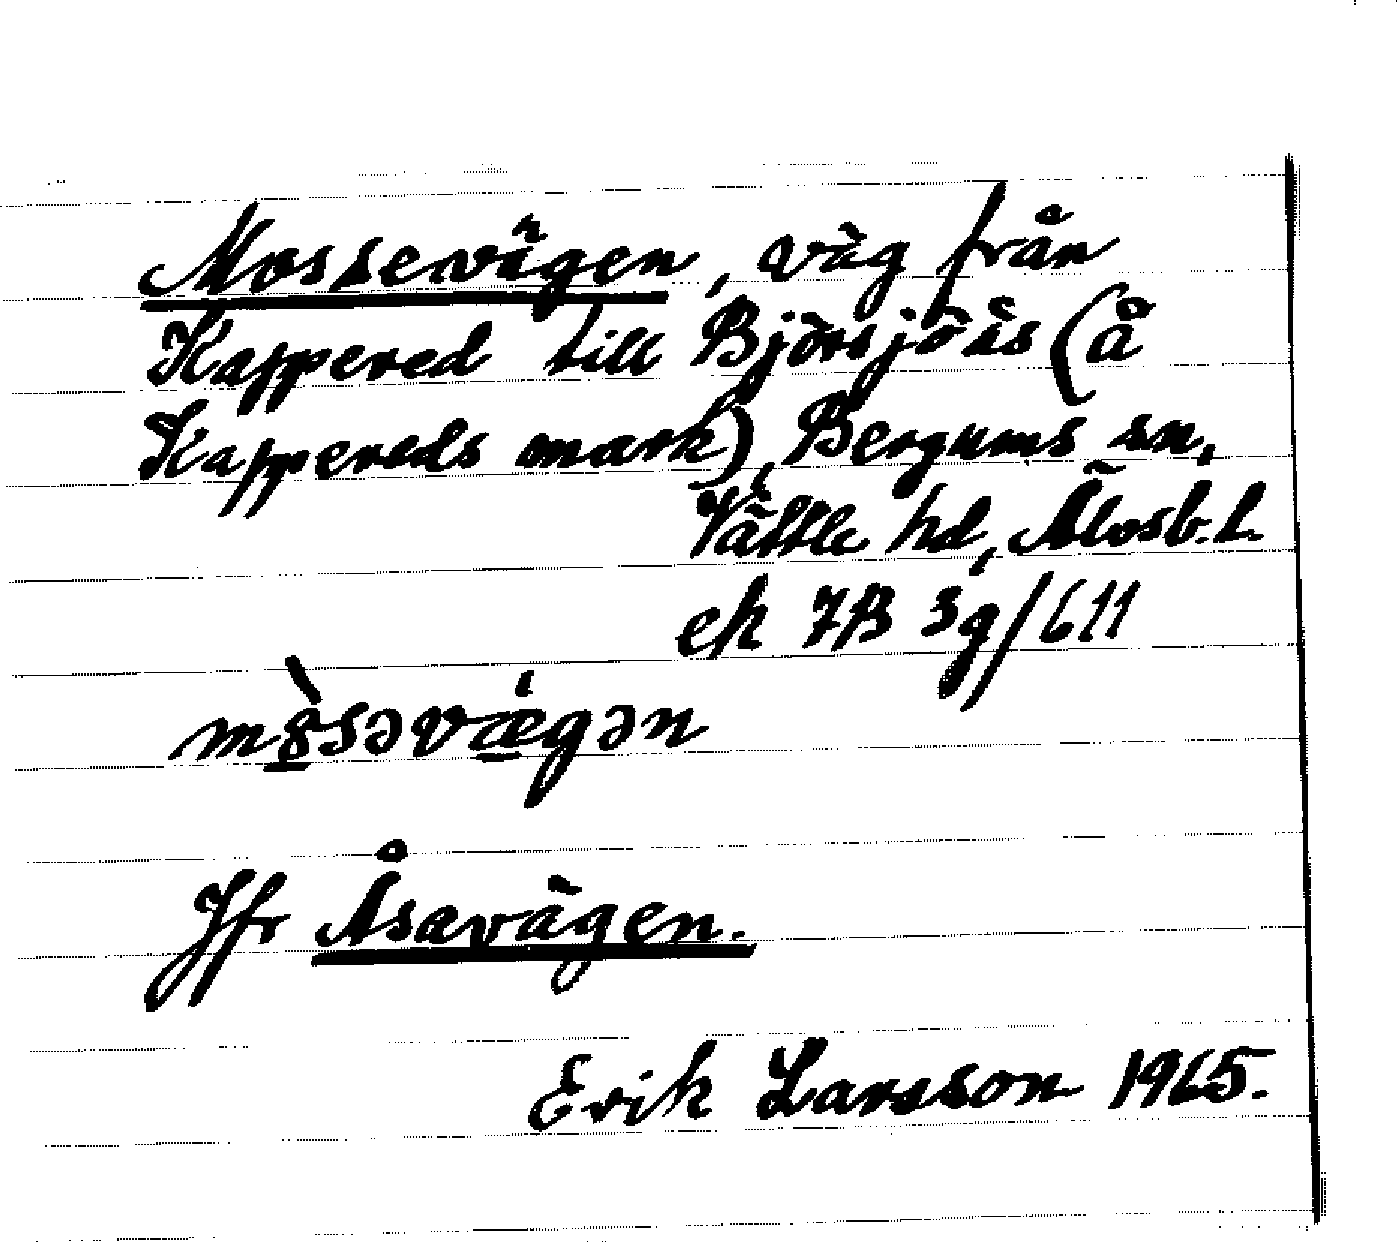 Mossevägen, väg från
Kappered till Björsjöås (å
Kappereds mark), Bergums sn,
Vättle hd, Älvsb. l.
ek 7B 3g/611
mo̠̊̀səvǽ̠gən
Jfr Åsavägen.
Erik Larsson 1965.